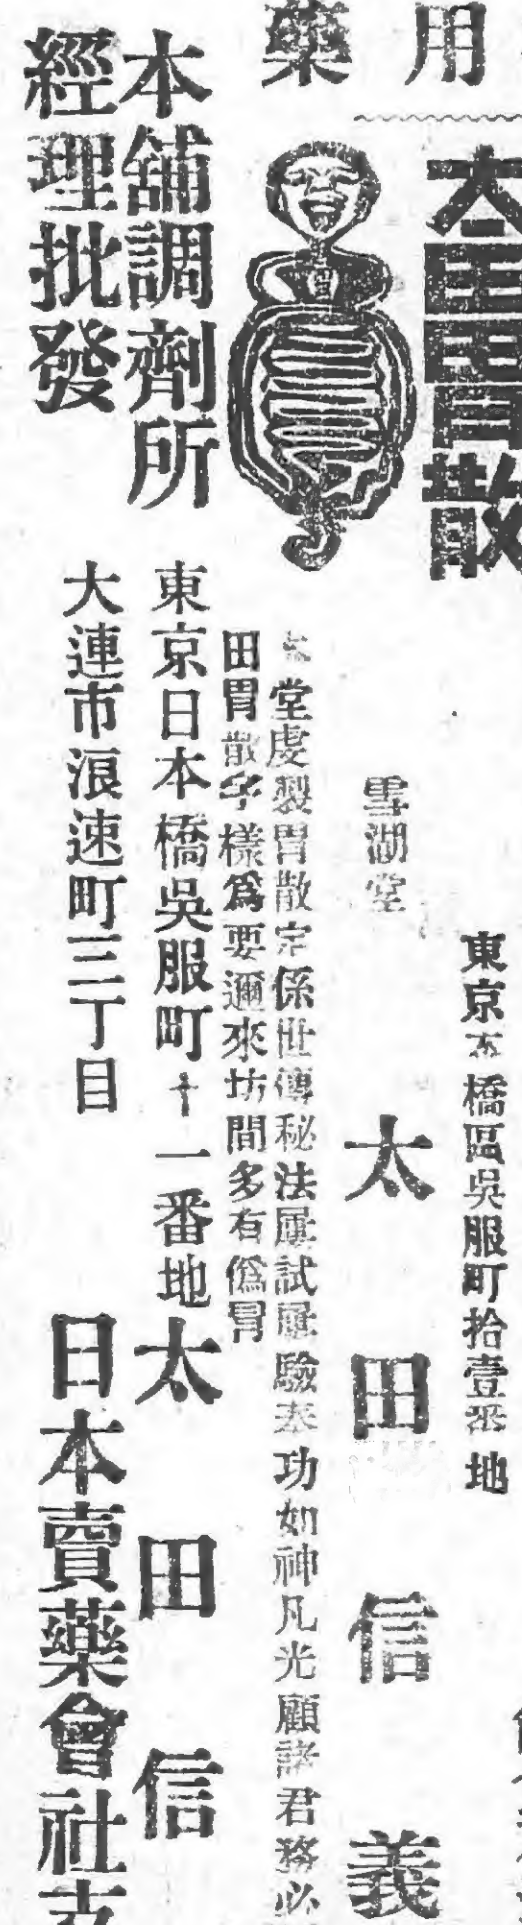 用
藥
太田胃散
東京本橋區吳服町拾壹番地
雪湖堂 太田信義
堂虔製胃散實係世傳秘法屢試屢驗奏功如神凡光顧諸君務必
田胃散字樣爲要邇來坊間多有僞冒
本舖調劑所 東京日本橋吳服町十一番地 太田信
經理批發 大連市浪速町三丁目 日本賣藥會社支